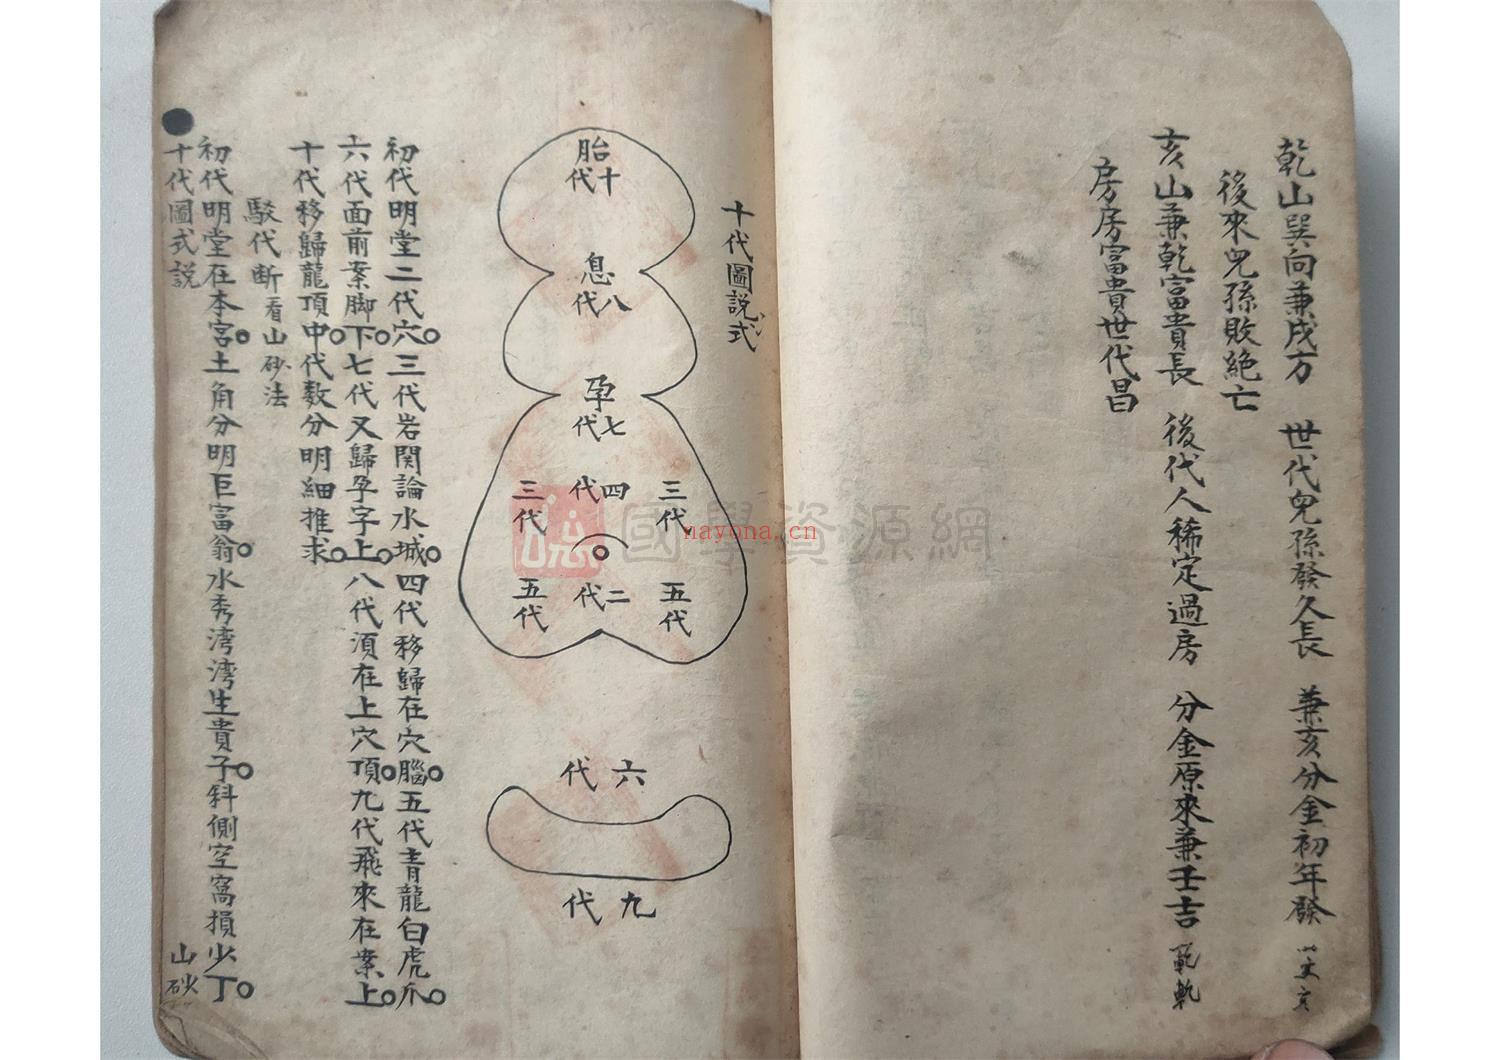 乾山巽向兼戌方　世代兒孫發久長　兼亥分金初年發
後來兒孫敗絕亡
亥山兼乾富貴長　後代人稀定過房　分金原來兼壬吉
房房富貴世代昌
十代圖説式
胎
十代
息
八代
孕
七代
三代
四代
三代
五代
二代
五代
六代
九代
初代明堂二代穴三代岩関論水城四代移歸在穴腦五代青龍白虎爪
六代面前案脚下七代又歸孕字上八代須在上穴頂九代飛來在案上
十代移歸龍頂中代数分明細推求
駁代断看山砂法
初代明堂在本宮土角分明巨富翁水秀湾湾生貴子斜側空窩損少丁
十代圖式説
山砂
國學資源網
nayona.cn